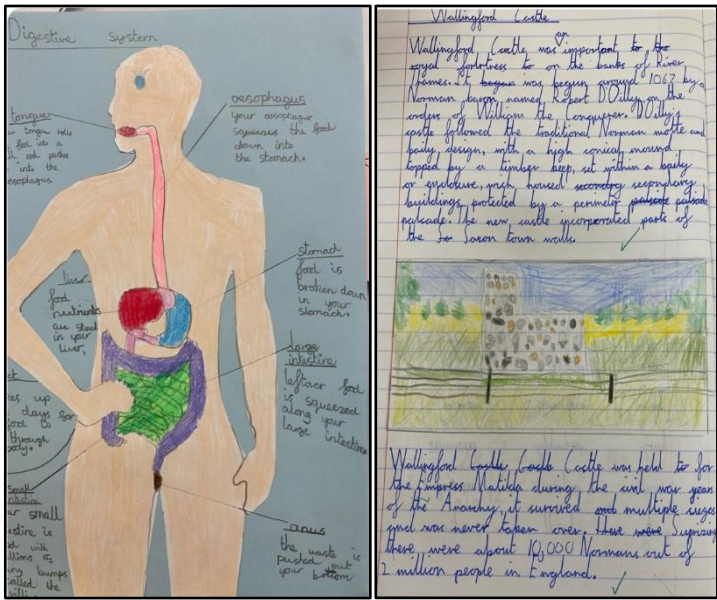 Digestive system
tongue
tongue rolls
food into a
and pushes
into the
oesophagus.
oesophagus
your oesophagus
squeezes the food
down into
the stomach.
liver
food
nutrients
are stored
in your
liver.
stomach
food is
broken down
in your
stomach.
large
intestine
leftover food
is squeezed
along your
large intestine
up
days for
food to
through
body.
small
intestine
small
intestine is
with
millions of
tiny bumps
called the
villi
anus
the waste is
pushed out
your bottom
Wallingford Castle
Wallingford Castle was an important to the
royal fortrtress to on the banks of River
Thames. It began was begun around 1067 by a
Norman baron named Robert D'Oilly on the
orders of William the Conquerer. D'Oilly's
castle followed the traditional Norman motte and
baily design, with a high conical mound
topped by a timber keep, set within a baily
or enclosure, wich housed secondry secondary
buildings, protected by a perimeter
palisade. The new castle incorporated parts of
the Saxon town walls.
Wallingford Castle Castle Castle was held to for
the Empress Matilda during the civil war years
of the Anarchy, it survived and multiple sieges
and was never taken over. there were
there were about 10,000 Normans out of
2 million people in England.